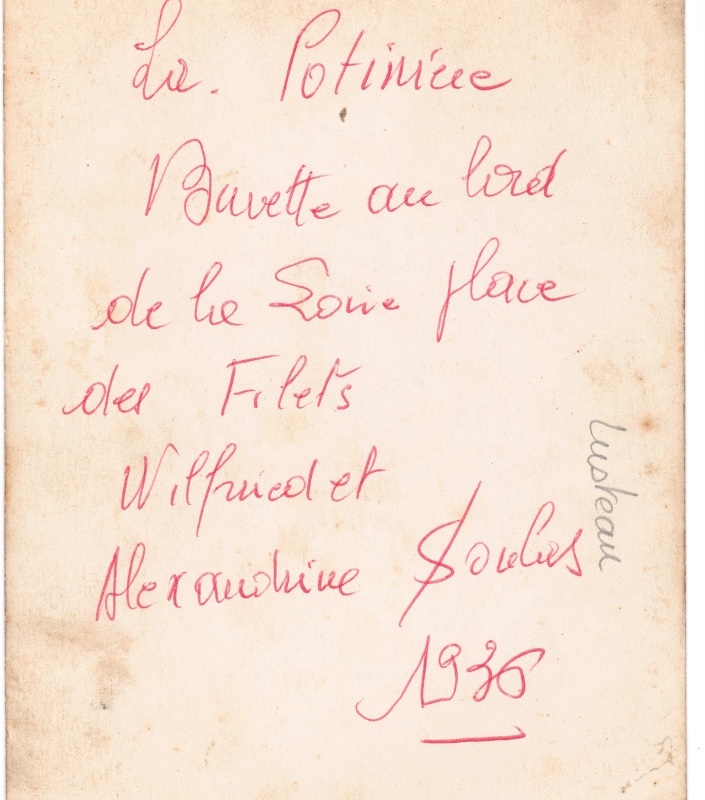 La. Potinière
Buvette au bord
de la Loire place
des Filets
Wilfried et
Alexandrine Soulas
1936
Lusteau